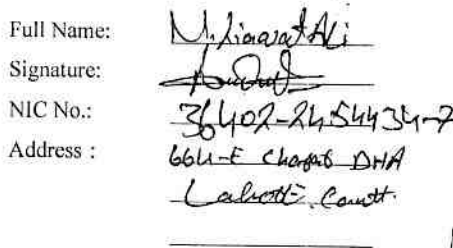 Full Name: M. Liaqat Ali
Signature:
NIC No.: 36402-2454434-7
Address : 664-E DHA
Cantt.